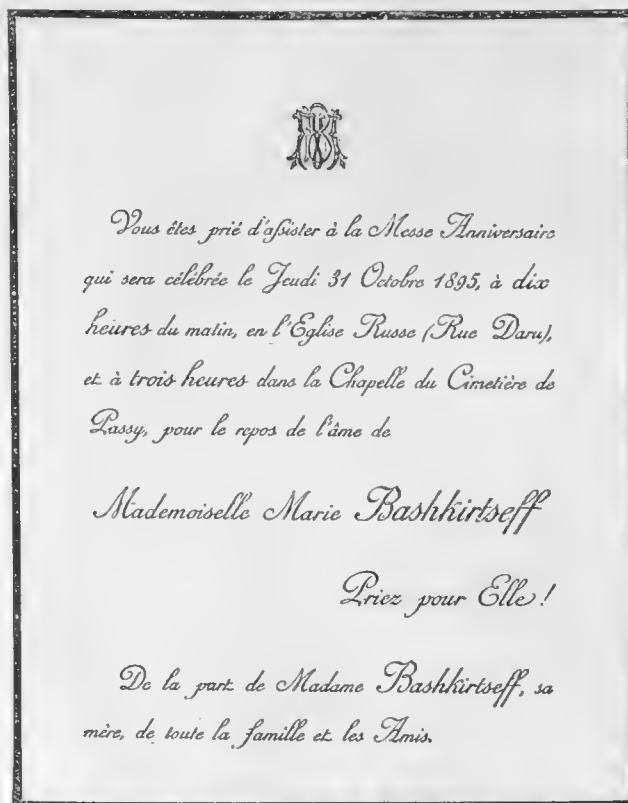 Vous êtes prié d'assister à la Messe Anniversaire
qui sera célébrée le Jeudi 31 Octobre 1895, à dix
heures du matin, en l'Eglise Russe (Rue Daru),
et à trois heures dans la Chapelle du Cimetière de
Passy, pour le repos de l'âme de
Mademoiselle Marie Bashkirtseff
Priez pour Elle!
De la part de Madame Bashkirtseff, sa
mère, de toute la famille et les Amis.